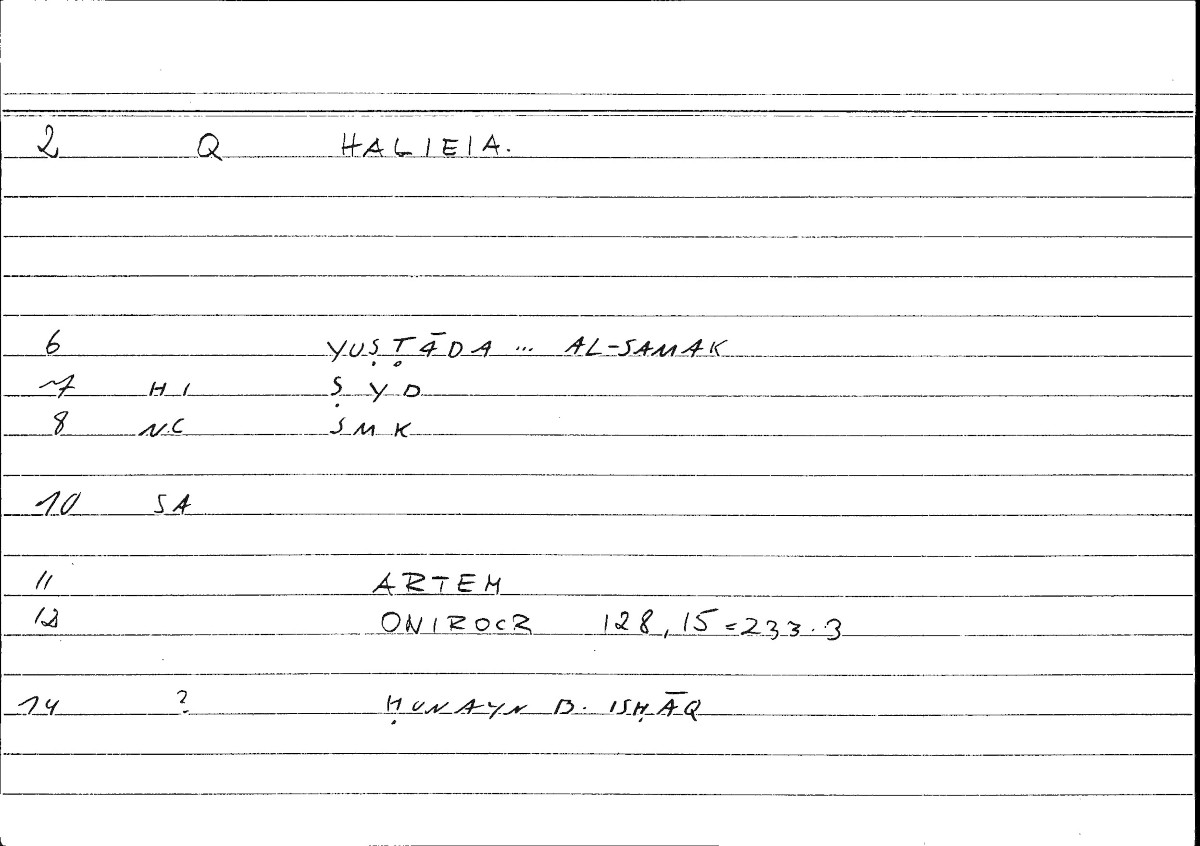 2 Q HALIEIA.
6 YUṢṬĀDA ... AL-SAMAK
7 HI ṢYD
8 NC SMK
10 SA
11 ARTEM
12 ONIROCR 128,15=233.3
14 ? ḤUNAYN B. ISḤĀQ